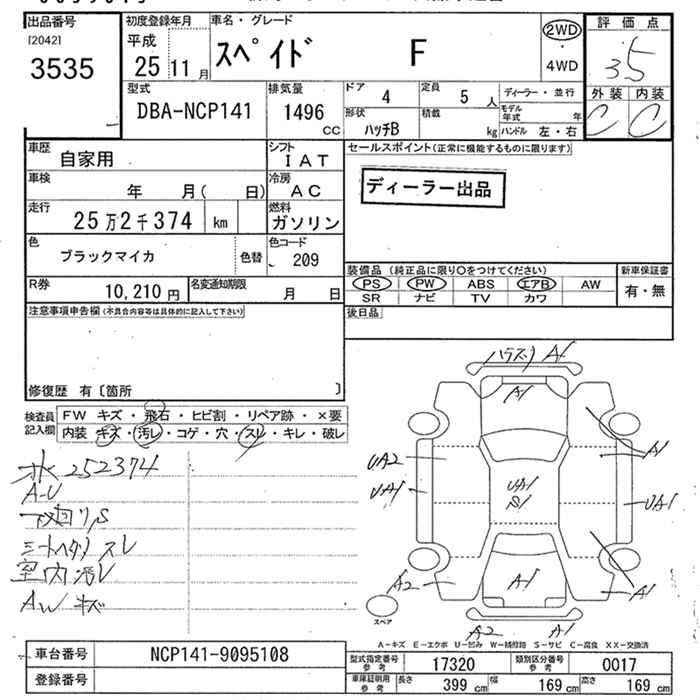 出品番号 初度登録年月 車名・グレード 評価点
[2042] 平成 ②WD
3535 25 11月 スペイド F ・ 3.5
4WD
外装 内装
C C
型式 排気量 ドア 4 定員 5 人 ディーラー・並行
DBA-NCP141 1496 cc 形状 ハッチB 積載 kg モデル年式 年
ハンドル 左・右
車歴 自家用 シフト IAT セールスポイント(正常に機能するものに限ります)
車検 年 月( 日) 冷房 AC ディーラー出品
走行 25万2千374 km 燃料 ガソリン
色 ブラックマイカ 色替 色コード 209
装備品 (純正品に限り○をつけてください) 新車保証書
PS PW ABS エアB AW 有・無
SR ナビ TV カワ
R券 10,210円 名変通知期限 月 日
後日品
注意事項申告欄(不具合内容等は具体的に記入して下さい)
修復歴 有〔箇所 〕
検査員記入欄 FW キズ・飛石・ヒビ割・リペア跡・×要
内装 キズ・汚レ・コゲ・穴・スレ・キレ・破レ
252374
A-U
シートヘタリ スレ
室内汚レ
AW キズ
A1
A1
UA2 A1
UA1 UA1 UA1
S1
A2 A1 A1
スペア
A2 A1
A-キズ E-エクボ U-凹み W-補修跡 S-サビ C-腐食 XX-交換済
車台番号 NCP141-9095108 型式指定番号 参考 17320 類別区分番号 参考 0017
登録番号 車庫証明用 参考 長さ 399 cm 幅 169 cm 高さ 169 cm